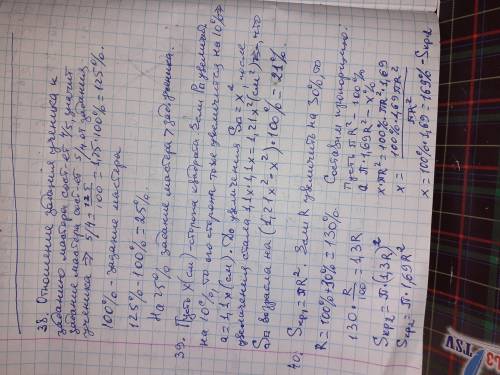 38. Отношение задания ученика к
заданию мастера сост-ет 4/5, значит
задание мастера сост-ет 5/4 от задания
ученика ⇒ 5/4 = 125/100 = 1,25·100% = 125%.
100% - задание мастера
125% - 100% = 25%.
На 25% задание мастера > зад. ученика.
39. Пусть x (см) - сторона квадрата. Если P увелич
на 10%, то его сторона тоже увеличится на 10% ⇒
a = 1,1x (см). До увеличения Sкв = x², после
увеличения стала 1,1x·1,1x = 1,21x² (см²), что
Sкв возросла на (1,21x² - x²)·100% = 21%.
40. Sкр1 = πR². Если R увеличить на 30%, то
R = 100% + 30% = 130%
130·R/100 = 1,3R
Sкр2 = π·(1,3R)²
Sкр2 = π·1,69R²
Составим пропорцию:
Пусть πR² - 100%
а π·1,69R² - x%
x·πR² = 100%·πR²·1,69
x = 100%·1,69πR²/πR²
x = 100%·1,69 = 169% - Sкр2
TSV